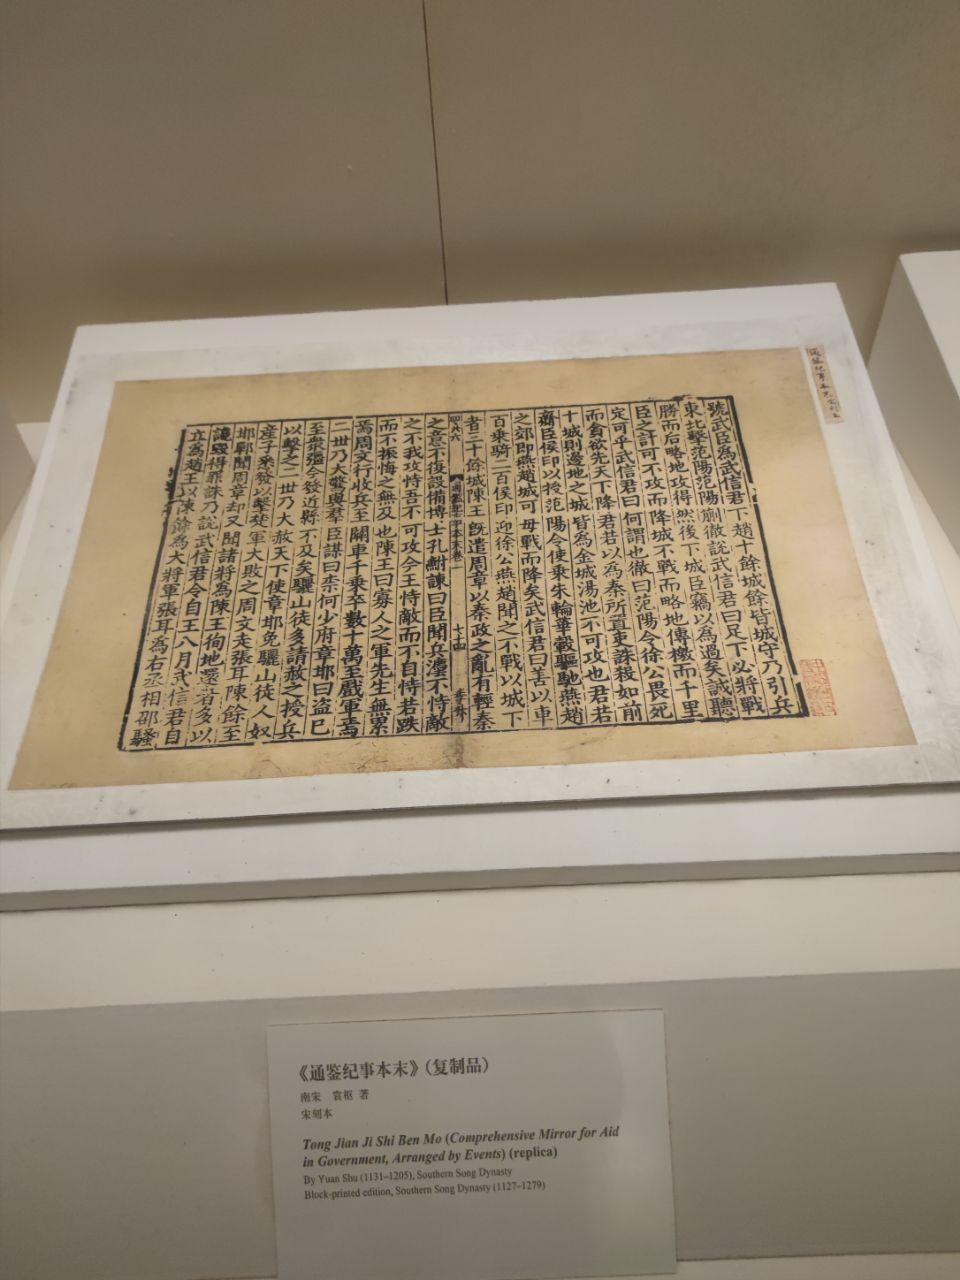 號武臣爲武信君下趙十餘城餘皆城守乃引兵
東北擊范陽范陽蒯徹說武信君曰足下必將戰
勝而后略地攻得然後下城臣竊以爲過矣誠聽
臣之計可不攻而降城不戰而略地傳檄而千里
定可乎武信君曰何謂也徹曰范陽令徐公畏死
而貪欲先天下降君若以爲秦所置吏誅殺如前
十城則邊地之城皆爲金城湯池不可攻也君若
齎臣侯印以授范陽令使乗朱輪華轂驅馳燕趙
之郊即燕趙城可毋戰而降矣武信君曰善以車
百乗騎二百侯印迎徐公燕趙聞之不戰以城下
者三十餘城陳王旣遣周章以秦政之亂有輕秦
十四
之意不復設備博士孔鮒諫曰臣聞兵灋不恃敵
之不我攻恃吾不可攻今王恃敵而不自恃若跌
而不振悔之無及也陳王曰寡人之軍先生無累
焉周文行收兵至關車千乗卒數十萬至戲軍焉
二世乃大驚與羣臣謀曰柰何少府章邯曰盗已
至衆彊今發近縣不及矣驪山徒多請赦之授兵
以擊之二世乃大赦天下使章邯免驪山徒人奴
產子悉發以擊楚軍大敗之周文走張耳陳餘至
邯鄲聞周章却又聞諸將爲陳王徇地還者多以
讒毀得罪誅乃說武信君令自王八月武信君自
立爲趙王以陳餘爲大將軍張耳爲右丞相邵騷
《通鉴纪事本末》（复制品）
南宋 袁枢 著
宋刻本
Tong Jian Ji Shi Ben Mo (Comprehensive Mirror for Aid
in Government, Arranged by Events) (replica)
By Yuan Shu (1131–1205), Southern Song Dynasty
Block-printed edition, Southern Song Dynasty (1127–1279)